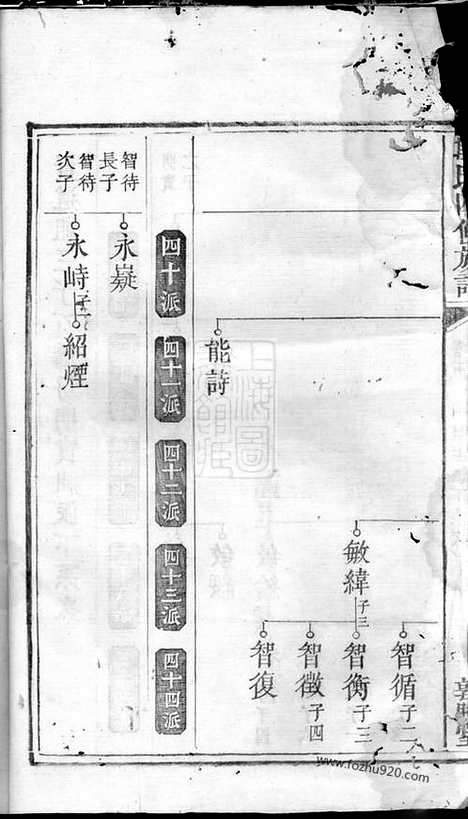 智循子二
敏緯子三
智衡子三
智徵子四
智復
能詩
四十派
四十一派
四十二派
四十三派
四十四派
智待長子
永嶷
智待次子
永峙子一
紹煙
www.fozhu920.com